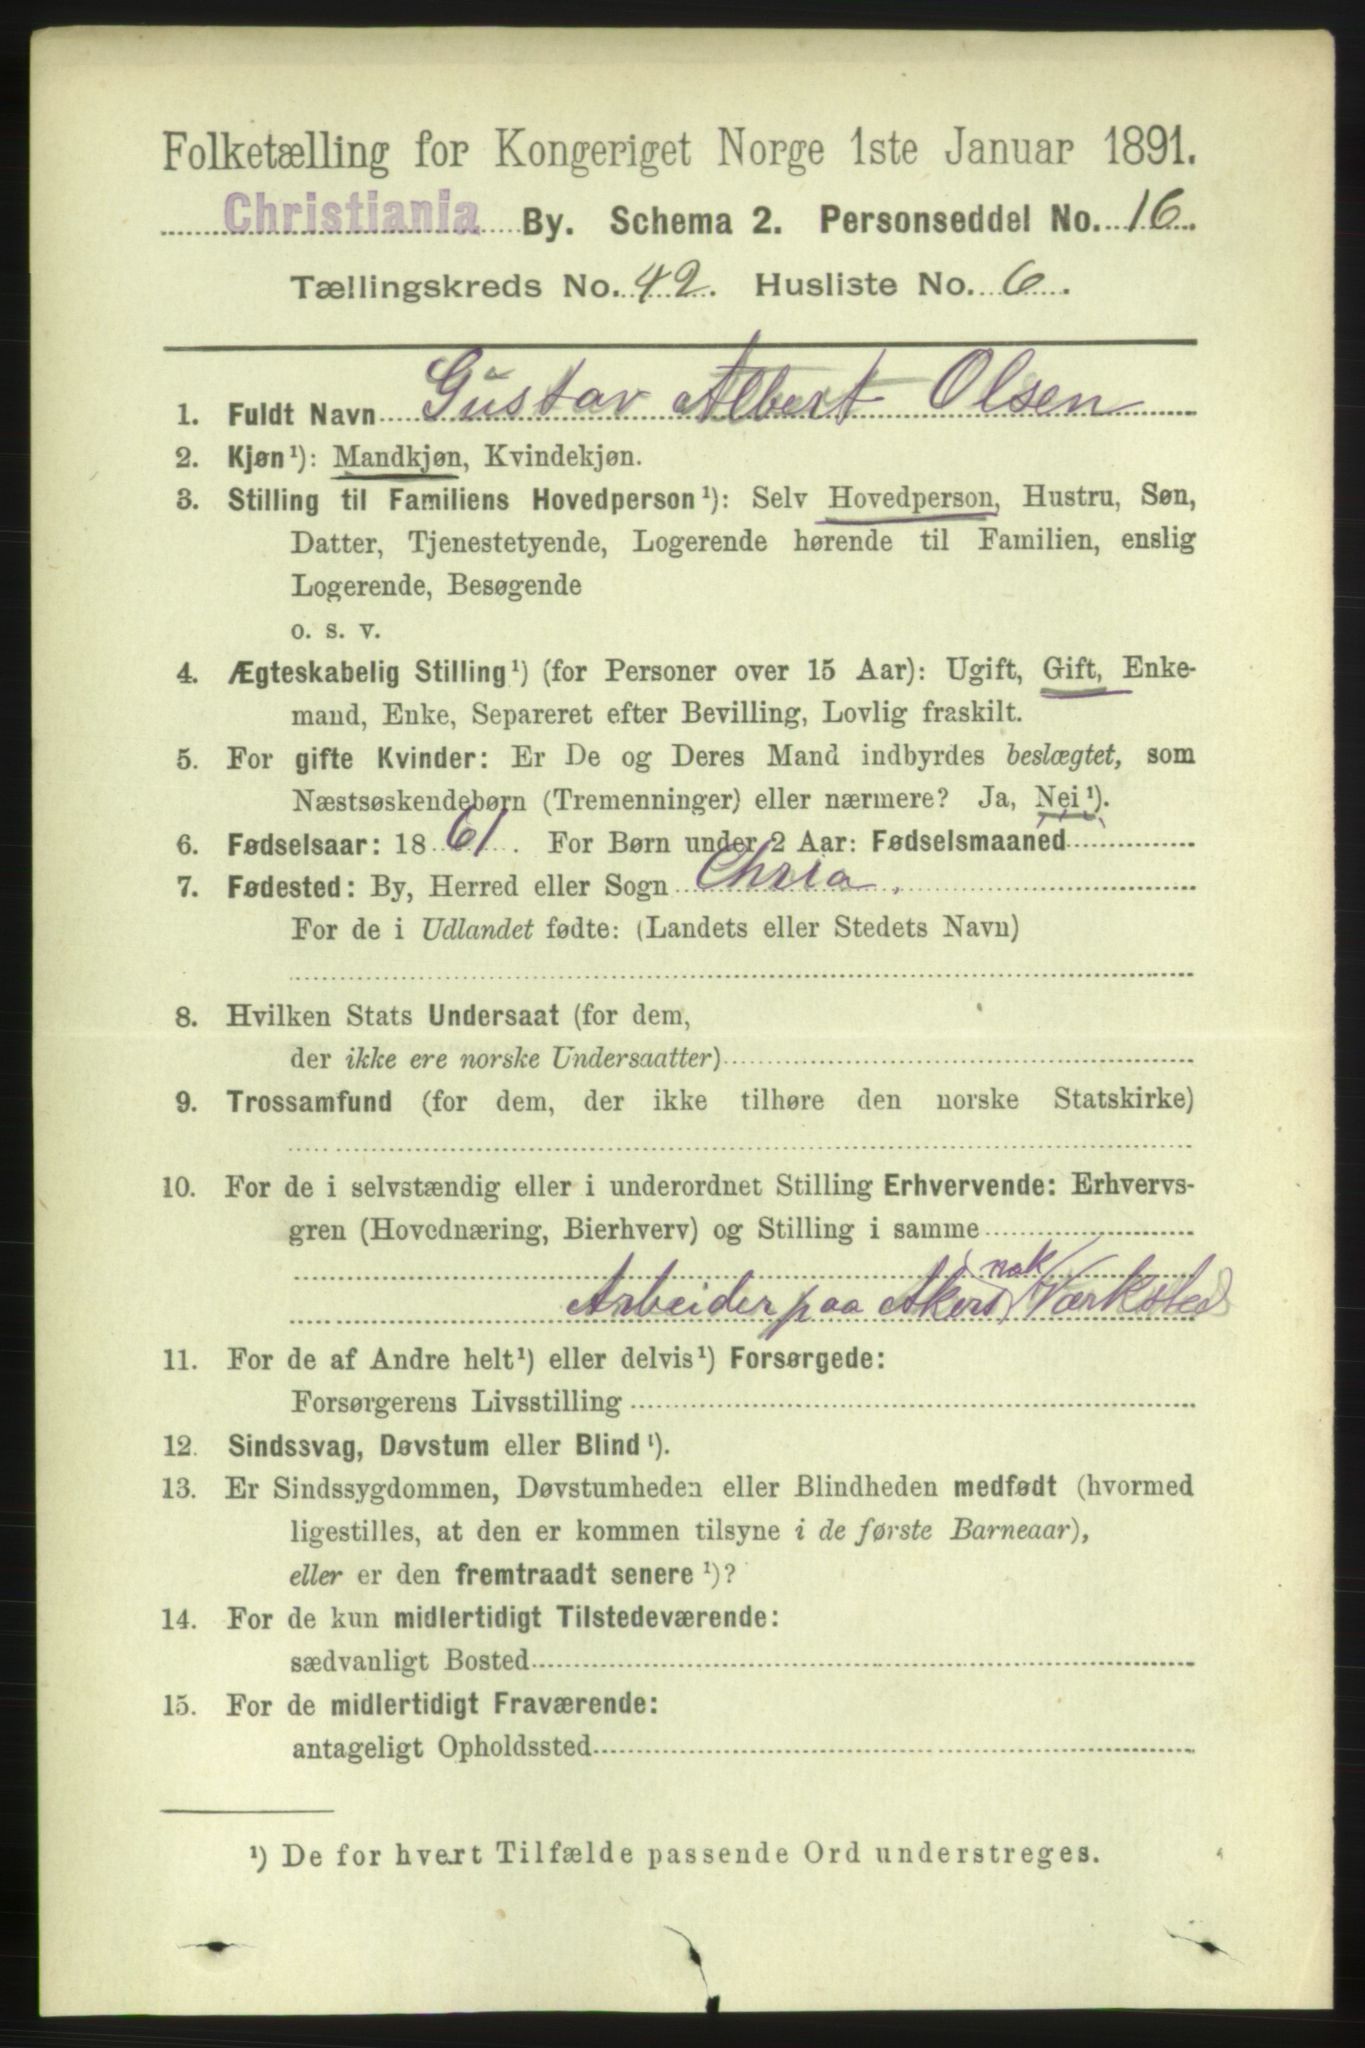 Folketælling for Kongeriget Norge 1ste Januar 1891.
Christiania By. Schema 2. Personseddel No. 16.
Tællingskreds No. 42. Husliste No. 6.
1. Fuldt Navn Gustav Albert Olsen
2. Kjøn¹): Mandkjøn, Kvindekjøn.
3. Stilling til Familiens Hovedperson¹): Selv Hovedperson, Hustru, Søn,
Datter, Tjenestetyende, Logerende hørende til Familien, enslig
Logerende, Besøgende
o. s. v.
4. Ægteskabelig Stilling¹) (for Personer over 15 Aar): Ugift, Gift, Enke-
mand, Enke, Separeret efter Bevilling, Lovlig fraskilt.
5. For gifte Kvinder: Er De og Deres Mand indbyrdes beslægtet, som
Næstsøskendebørn (Tremenninger) eller nærmere? Ja, Nei¹).
6. Fødselsaar: 1861. For Børn under 2 Aar: Fødselsmaaned
7. Fødested: By, Herred eller Sogn Chria.
For de i Udlandet fødte: (Landets eller Stedets Navn)
8. Hvilken Stats Undersaat (for dem,
der ikke ere norske Undersaatter)
9. Trossamfund (for dem, der ikke tilhøre den norske Statskirke)
10. For de i selvstændig eller i underordnet Stilling Erhvervende: Erhvervs-
gren (Hovednæring, Bierhverv) og Stilling i samme
mek
Arbeider paa Akers Værksted
11. For de af Andre helt¹) eller delvis¹) Forsørgede:
Forsørgerens Livsstilling
12. Sindssvag, Døvstum eller Blind¹).
13. Er Sindssygdommen, Døvstumheden eller Blindheden medfødt (hvormed
ligestilles, at den er kommen tilsyne i de første Barneaar),
eller er den fremtraadt senere¹)?
14. For de kun midlertidigt Tilstedeværende:
sædvanligt Bosted
15. For de midlertidigt Fraværende:
antageligt Opholdssted
¹) De for hvert Tilfælde passende Ord understreges.